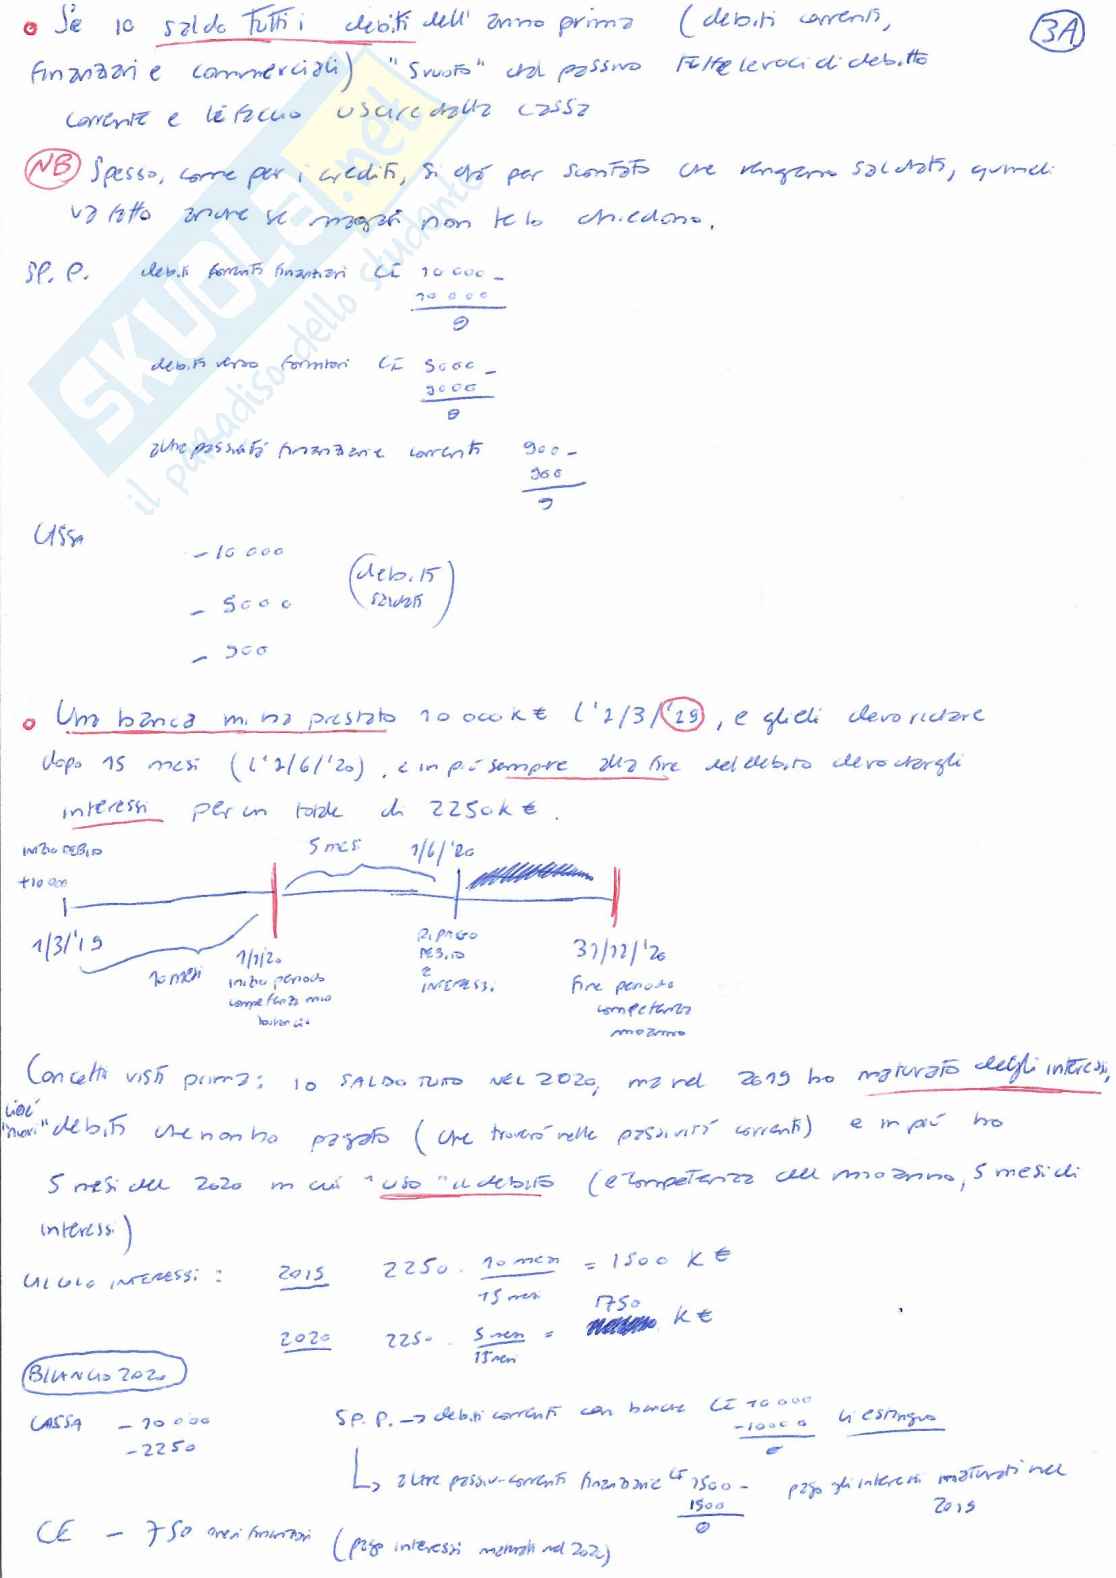 • Se io saldo tutti i debiti dell'anno prima (debiti correnti, 3A
finanziari e commerciali) "svuoto" dal passivo tutte le voci di debito
corrente e le faccio uscire dalla cassa
NB Spesso, come per i crediti, si dà per scontato che vengano saldati, quindi
va fatto anche se magari non te lo chiedono.
SP. P. debiti correnti finanziari CI 10 000 -
10 000
0
debiti verso fornitori CI 9000 -
9000
0
altre passività finanziarie correnti 900 -
900
0
Cassa
- 10 000
(debiti saldati)
- 9000
- 900
SKUOLA.net
il paradiso dello studente
• Una banca mi ha prestato 10 000 k € l'1/3/'19, e glieli devo ridare
dopo 15 mesi (l'1/6/'20), e in più sempre alla fine del debito devo dargli
interessi per un totale di 2250 k €.
INIZIO DEBITO 5 mesi 1/6/'20
+10 000
1/3/'19 10 mesi 1/1/20 RIPAGO 31/12/'20
DEBITO
E
INTERESSI
inizio periodo fine periodo
competenza mio competenza
bilancio mio anno
Concetti visti prima: io SALDO TUTTO NEL 2020, ma nel 2019 ho maturato degli interessi,
cioè
"nuovi" debiti che non ho pagato (che troverò nelle passività correnti) e in più ho
5 mesi del 2020 in cui "uso" il debito (è competenza del mio anno, 5 mesi di
interessi)
CALCOLO INTERESSI: 2019 2250 · 10 mesi / 15 mesi = 1500 k €
2020 2250 · 5 mesi / 15 mesi = 1750 k €
BILANCIO 2020
CASSA - 10 000
- 2250
SP. P. → debiti correnti con banche CI 10 000
- 10000 li estinguo
0
↳ altre passiv. correnti finanziarie CI 1500 - pago gli interessi maturati nel
1500 2019
0
CE - 750 oneri finanziari (pago interessi maturati nel 2020)